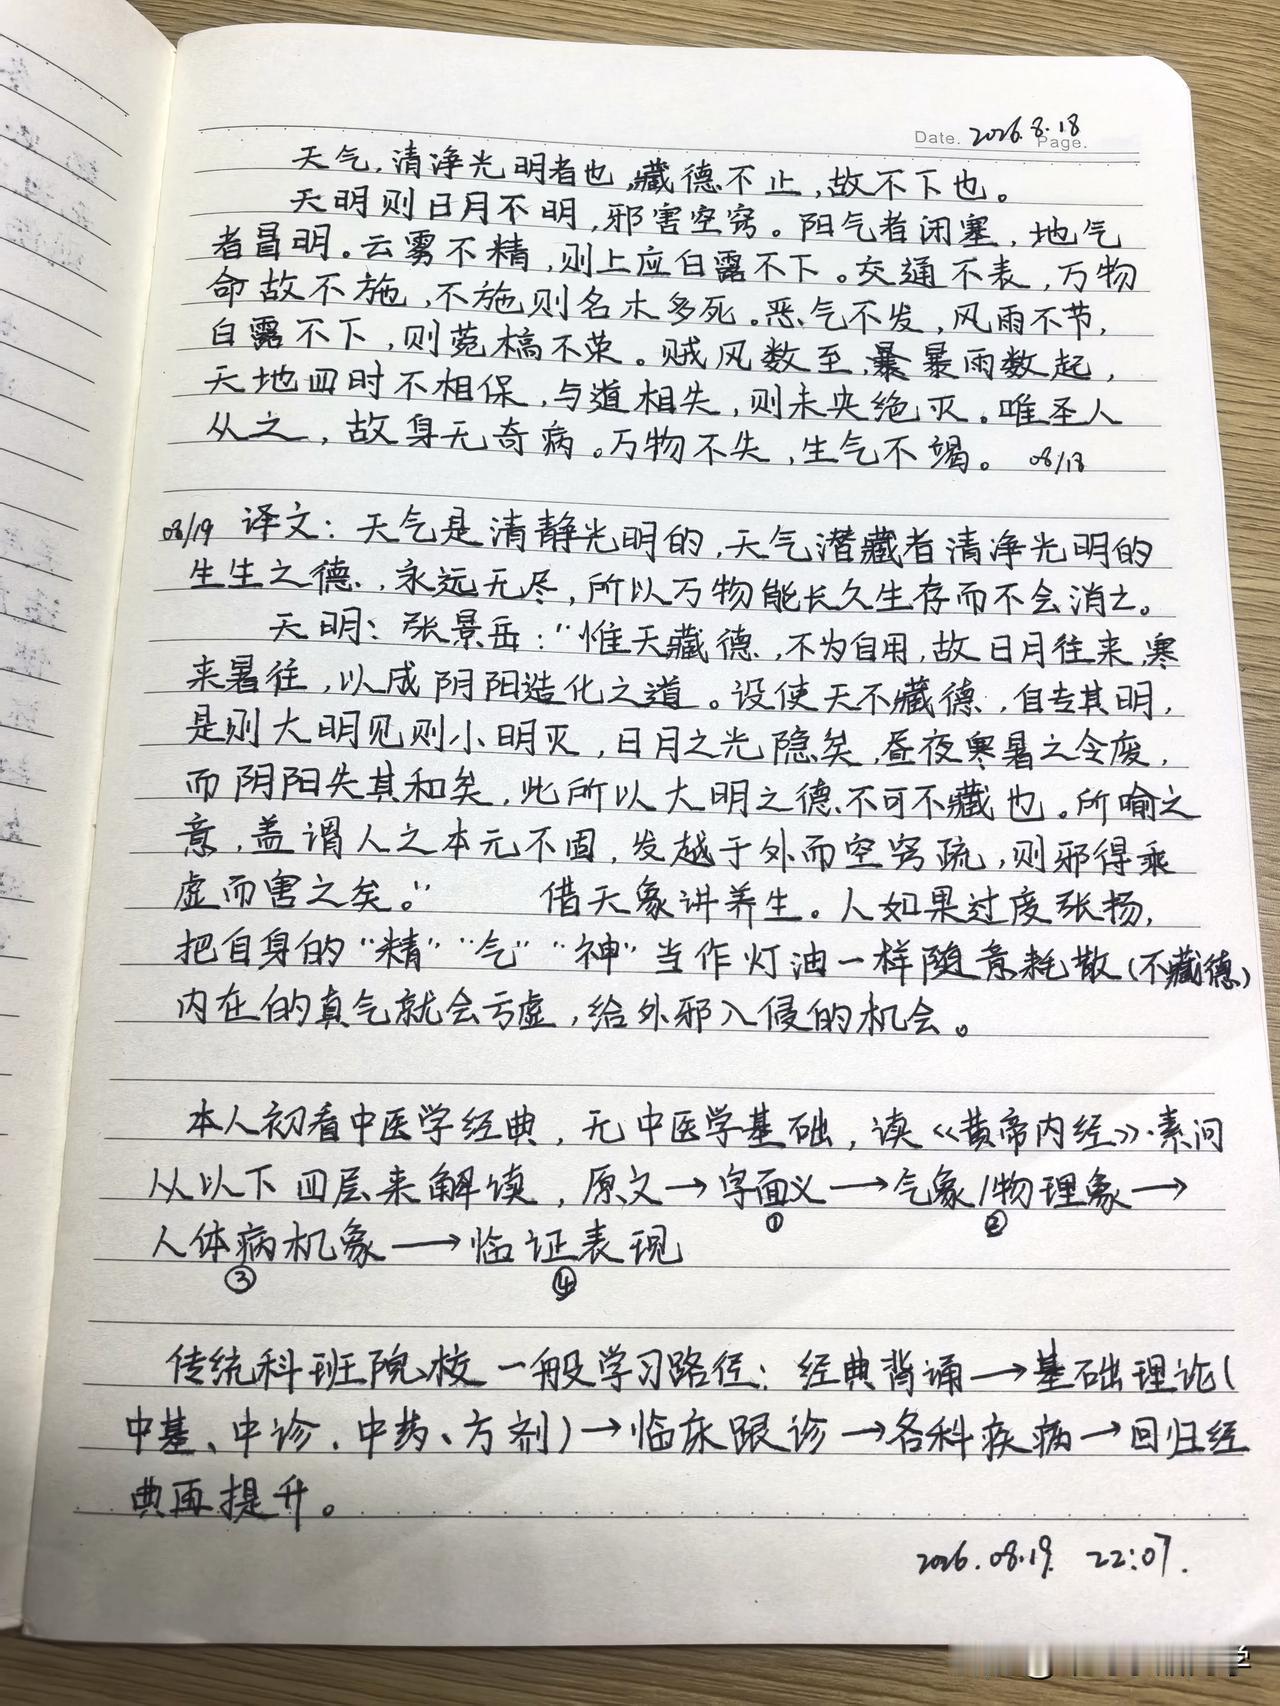 Date. 2026.8.18
Page.
天气,清净光明者也,藏德不止,故不下也。
天明则日月不明,邪害空窍。阳气者闭塞,地气
者冒明。云雾不精,则上应白露不下。交通不表,万物
命故不施,不施则名木多死。恶气不发,风雨不节,
白露不下,则菀槁不荣。贼风数至,暴暴雨数起,
天地四时不相保,与道相失,则未央绝灭。唯圣人
从之,故身无奇病。万物不失,生气不竭。 08/18
08/19 译文:天气是清静光明的,天气潜藏者清净光明的
生生之德,永远无尽,所以万物能长久生存而不会消亡。
天明:张景岳:“惟天藏德,不为自用,故日月往来,寒
来暑往,以成阴阳造化之道。设使天不藏德,自专其明,
是则大明见则小明灭,日月之光隐矣,昼夜寒暑之令废,
而阴阳失其和矣,此所以大明之德不可不藏也。所喻之
意,盖谓人之本元不固,发越于外而空窍疏,则邪得乘
虚而害之矣。” 借天象讲养生。人如果过度张扬,
把自身的“精”“气”“神”当作灯油一样随意耗散(不藏德)
内在的真气就会亏虚,给外邪入侵的机会。
本人初看中医学经典,无中医学基础,读《黄帝内经》·素问
从以下四层来解读,原文→字面义→气象/物理象→
① ②
人体病机象→临证表现
③ ④
传统科班院校一般学习路径:经典背诵→基础理论(
中基、中诊、中药、方剂)→临床跟诊→各科疾病→回归经
典再提升。
2026.08.19 22:07.